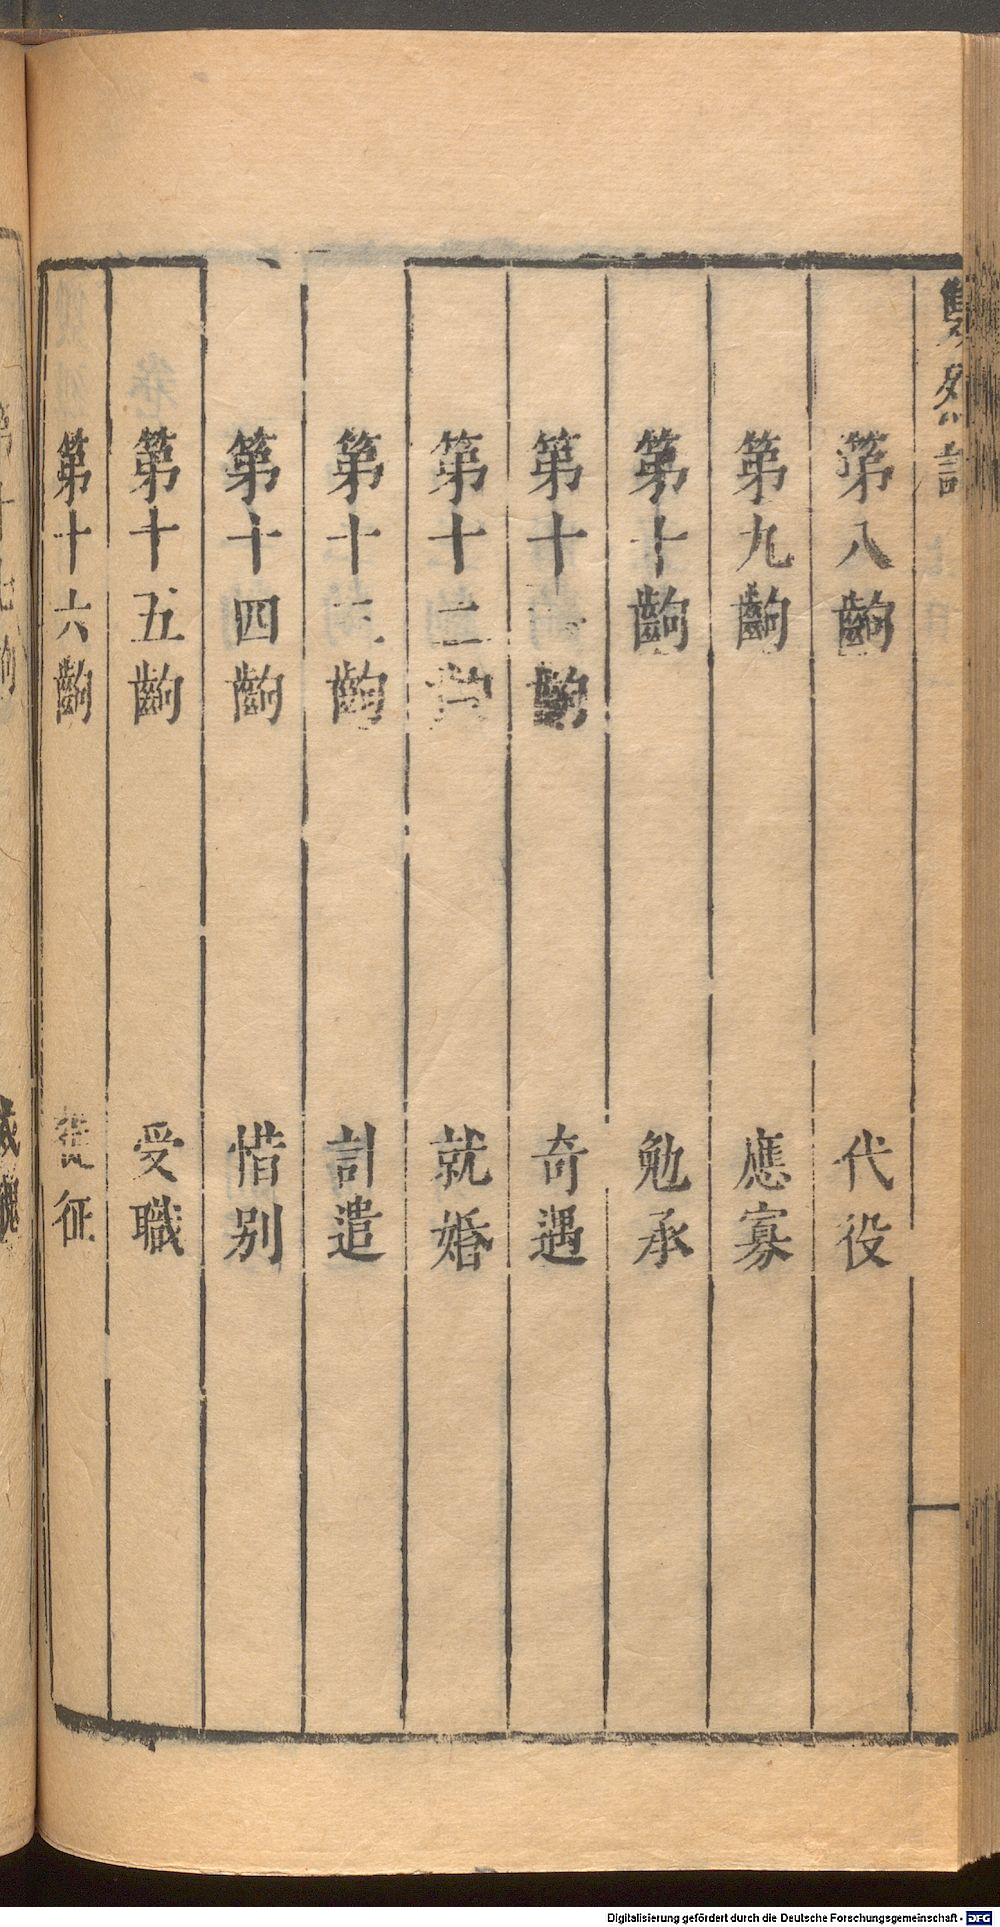 雙烈記
第八齣 代役
第九齣 應寡
第十齣 勉承
第十一齣 奇遇
第十二齣 就婚
第十三齣 計遣
第十四齣 惜别
第十五齣 受職
第十六齣 從征
Digitalisierung gefördert durch die Deutsche Forschungsgemeinschaft - DFG